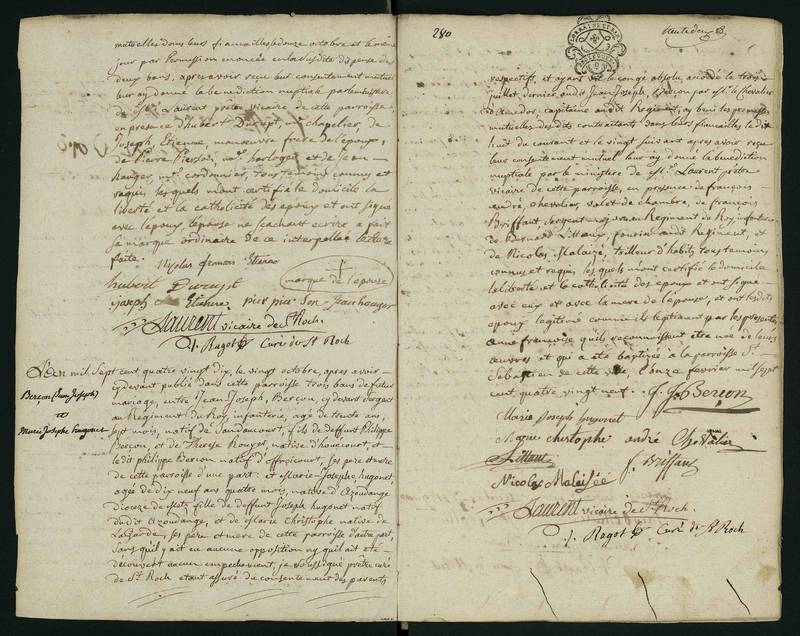 mutuelles dans leurs fiancailles le douze octobre et le même
jour par Permission enoncée en la susdite dispense de
deux bans, apres avoir reçu leur consentement mutuel
leur ay donné la benediction nuptiale par le ministere
de Mr. Laurent prêtre vicaire de cette parroisse
en presence d'hubert Durupt, chapelier, de
Joseph Etienne, manœuvre frere de l'epoux,
de Pierre Pierson, me. horloger, et de Jean
hauzer, me. cordonnier, tous temoins connus et
requis, lesquels m'ont certifié le domicile la
liberté et la catholicité des epoux et ont signé
avec l'epoux, l'epouse ne sçachant ecrire a fait
sa marque ordinaire de ce interpellée lecture
faite.
Nicolas Etienne
hubert Durupt
marque de l'epouse
joseph Etienne
jean hauzer
Laurent vicaire de St. Roch.
J. Ragot Curé de St Roch
L'an mil sept cent quatre vingt dix, le vingt octobre, apres avoir
cydevant publié dans cette parroisse trois bans de futur
mariage, entre Jean Joseph, Berçon, cy devant sergent
au Regiment du Roy infanterie, agé de trente ans,
sept mois, natif de Landaucourt, fils de deffunt Philippe
Berçon, et de Therese Rouyer, native d'houcourt, et
ledit philippe Bercon natif d'offroicourt, ses pere et mere
de cette parroisse d'une part: et Marie-Josephe hugonet,
agée de dix neuf ans quatre mois, native d'azoudange
dioceze de Metz, fille de deffunt Joseph hugonet natif
dudit azoudange, et de Marie Christophe native de
Lagarde, ses pere et mere de cette parroisse d'autre part,
sans quil y ait eu aucune opposition ny quil ait été
decouvert aucun empechement, je soussigné prêtre curé
de St. Roch etant assuré du consentement des parents
Berçon (Jean Joseph)
et
Marie Josephe hugonet
280
respectifs, et ayant vu le congé absolu, accordé le treize
juillet dernier, audit Jean Joseph, Berçon par Mr. le Chevalier
capitaine audit Regiment, ay beni les promesses
mutuelles desdits contractants dans leurs fiancailles le dix
huit du courant et le vingt suivant apres avoir reçu
leur consentement mutuel leur ay donné la benediction
nuptiale par le ministere de Mr. Laurent prêtre
vicaire de cette parroisse, en presence de françois
andré, chevalier, valet de chambre, de françois
Briffaut, sergent major au Regiment de Roy infanterie
de Bernard Littaut, fourier audit Regiment, et
de Nicolas, Malaizé, tailleur d'habits, tous temoins
connus et requis, lesquels m'ont certifié le domicile
la liberté et la catholicité des epoux et ont signé
avec eux et avec la mere de l'epouse, et ont lesdits
epoux legitimé comme ils legitiment par les presentes,
anne françoise quils reconnoissent etre née de leurs
œuvres et qui a été baptisée à la parroisse St.
Sebastien de cette ville, l'onze fevrier mil sept
cent quatre vingt neuf. J. J. Berçon
Marie Joseph hugonet
Marie christophe andré Chevalier
Littaut
J. Briffaut
Nicolas Malaisée
Laurent vicaire de St. Roch.
J. Ragot Curé de St Roch